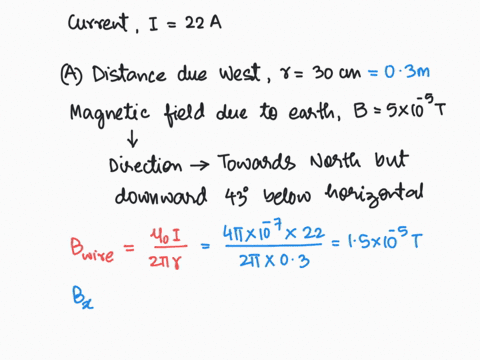 Current, I = 22 A
(A) Distance due West, r = 30 cm = 0.3m
Magnetic field due to earth, B = 5×10⁻⁵ T
↓
Direction → Towards North but
downward 43° below horizontal
B_wire = μ₀I / 2πr = 4π×10⁻⁷ × 22 / 2π × 0.3 = 1.5×10⁻⁵ T
B_x